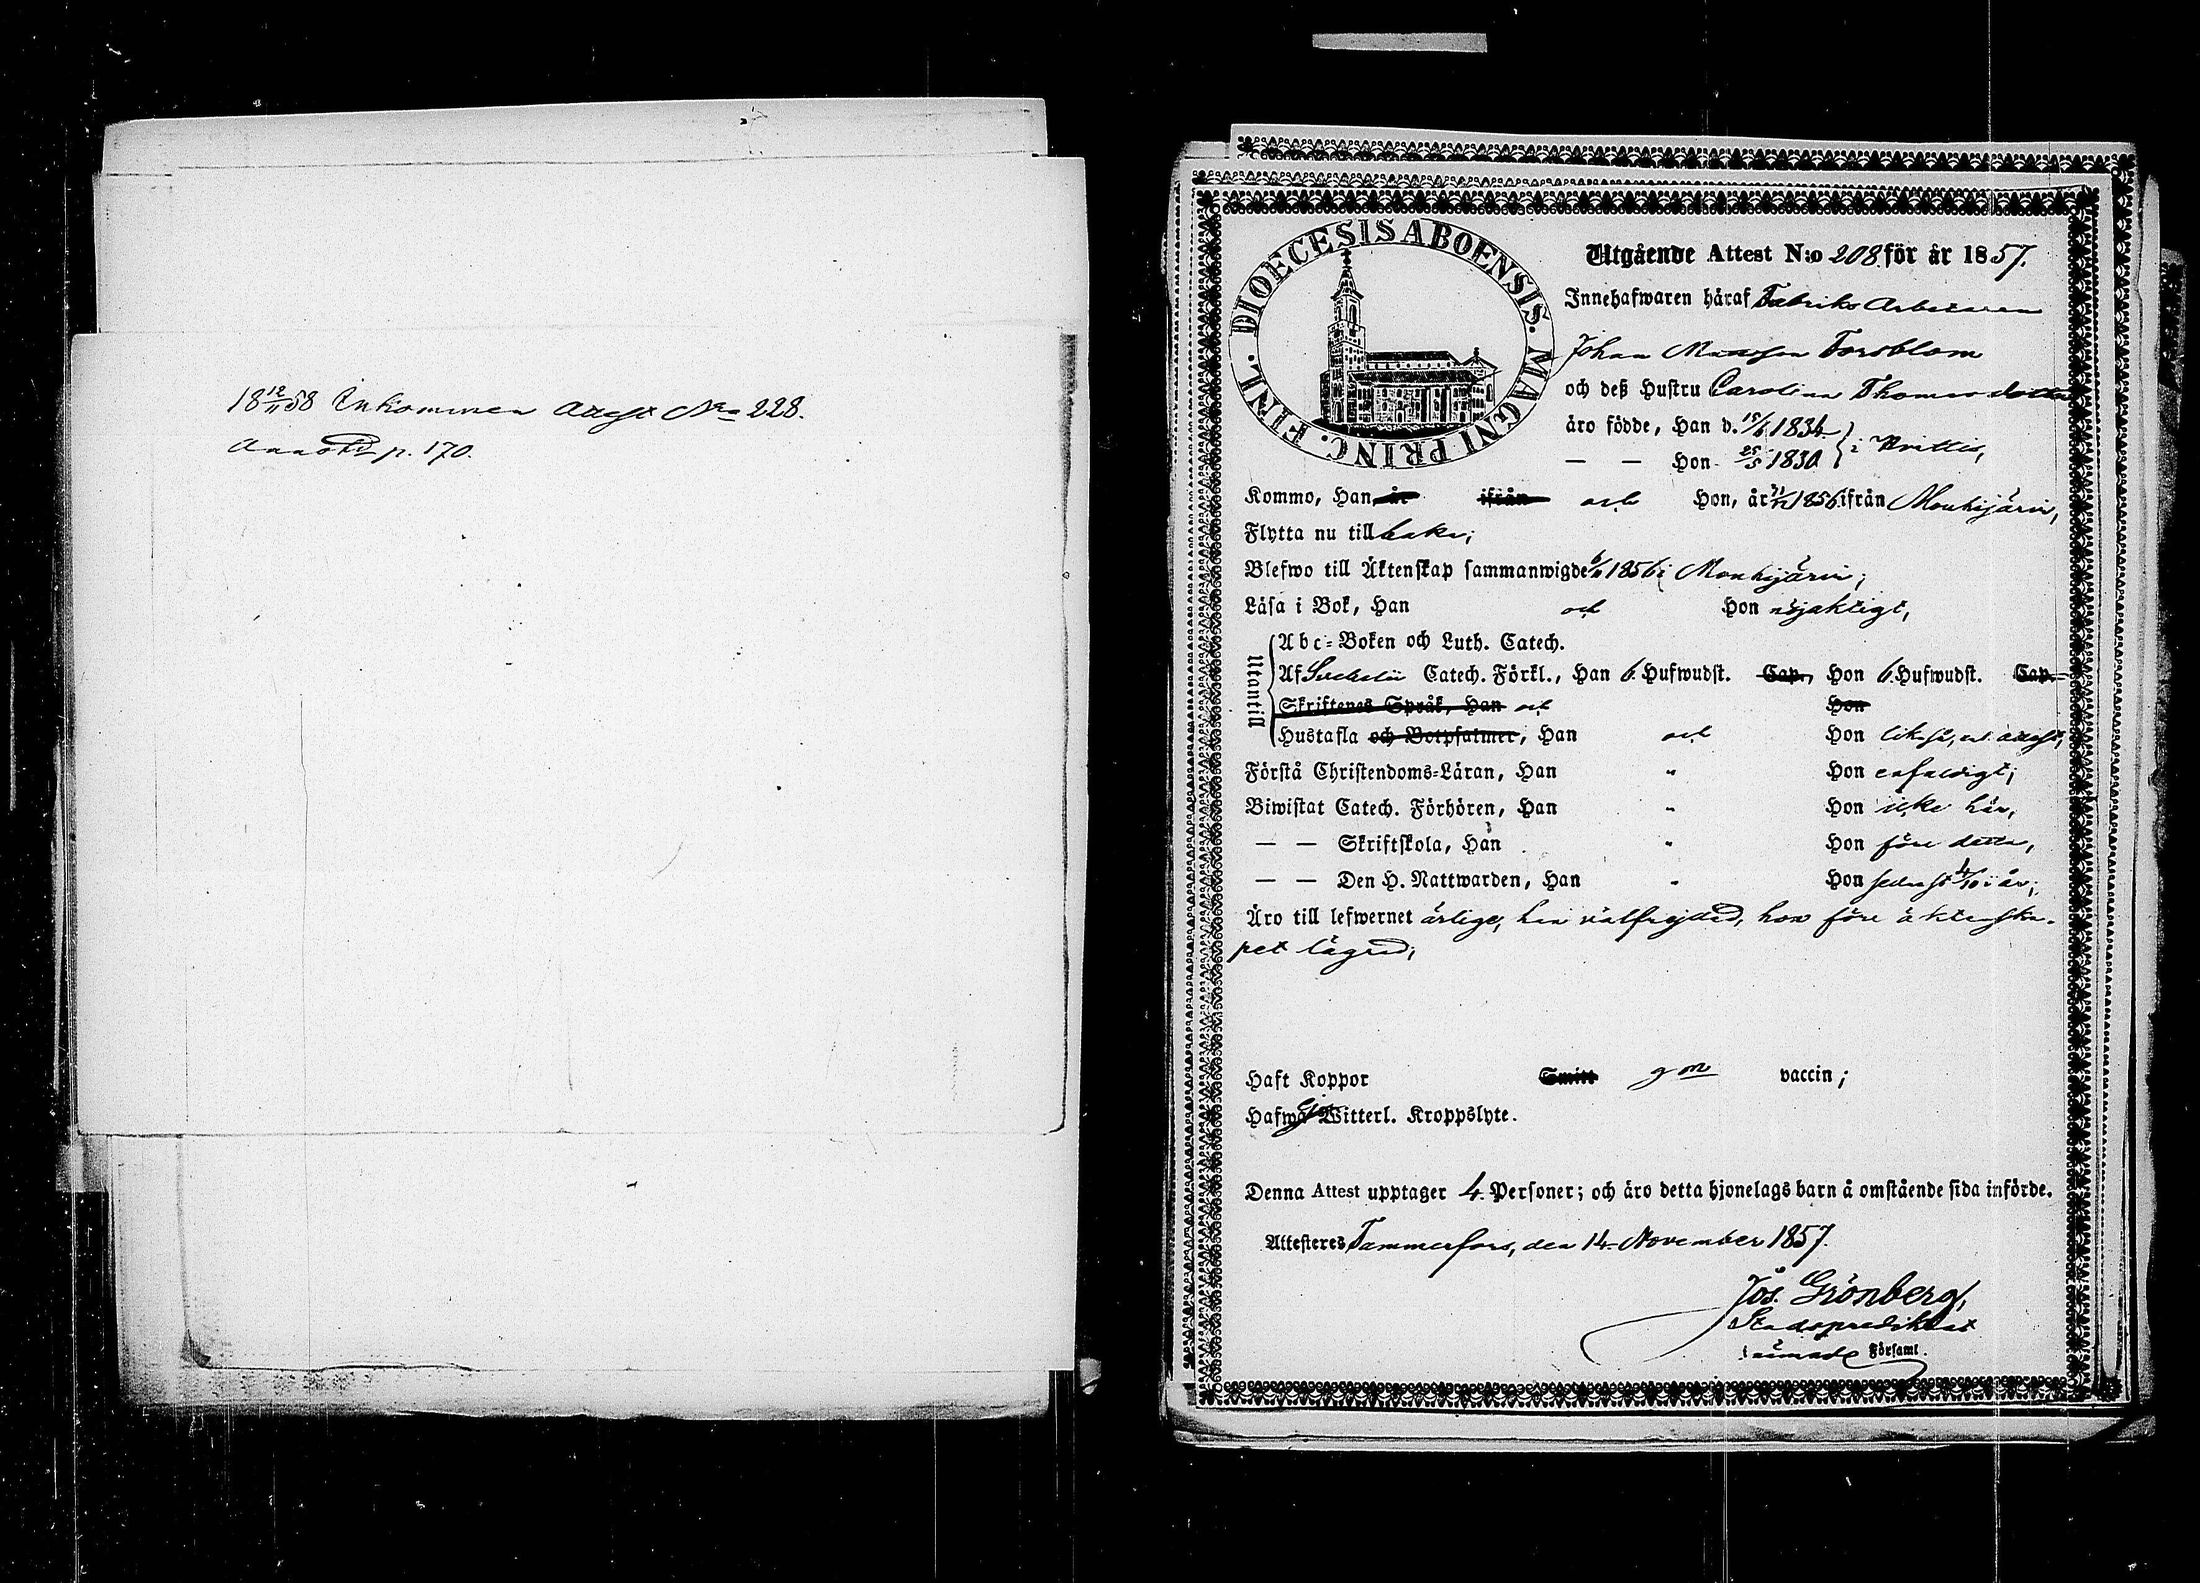 18 12/11 58 Inkommen Attest No 228.
Annoterad p. 170.
DIOECESIS ABOENSIS. MAGNI PRINC. FINL.
Utgående Attest N:o 208. för år 1857.
Innehafwaren häraf Fabriks Arbetaren
Johan Forsblom
och deß Hustru Carolina Thomasdotter
äro födde, Han d. 15/6 1834
— — Hon 25/5 1830 } i Hvittis,
Kommo, Han år ifrån och Hon, år 1856 ifrån Mouhijärvi,
Flytta nu till baka;
Blefwo till Äktenskap sammanwigde 1856 i Mouhijärvi;
Läsa i Bok, Han och Hon nöjaktigt,
Utantill
Abc-Boken och Luth. Catech.
Af Svebelii Catech. Förkl., Han 6. Hufwudst. Cap. Hon 6. Hufwudst. Cap.
Skriftenes Språk, Han och Hon
Hustafla och Botpsalmer, Han och Hon likaså, enl. attest,
Förstå Christendoms-Läran, Han " Hon enfaldigt;
Biwistat Catech. Förhören, Han " Hon icke här,
— — Skriftskola, Han " Hon före detta,
— — Den H. Nattwarden, Han " Hon sednast /10 i år;
Äro till lefwernet ärlige, han välfrejdad, hon före äktenska-
pet lägrad;
Haft Koppor Smitt gm vaccin;
Hafwa Ej Witterl. Kroppslyte.
Denna Attest upptager 4 Personer; och äro detta hjonelags barn å omstående sida införde.
Attesteres Tammerfors, den 14 November 1857.
Jos. Grönberg,
Stadspredikant
i nämnde Församl.